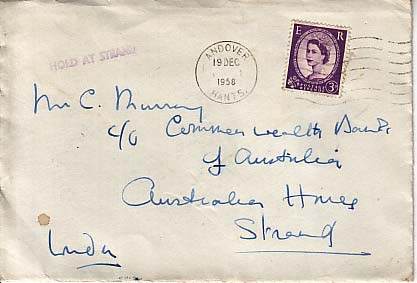 HOLD AT STRAND
ANDOVER
19 DEC
1958
HANTS.
E R
3D
Mr C. Murray
c/o Commonwealth Bank
of Australia
Australia House
Strand
London